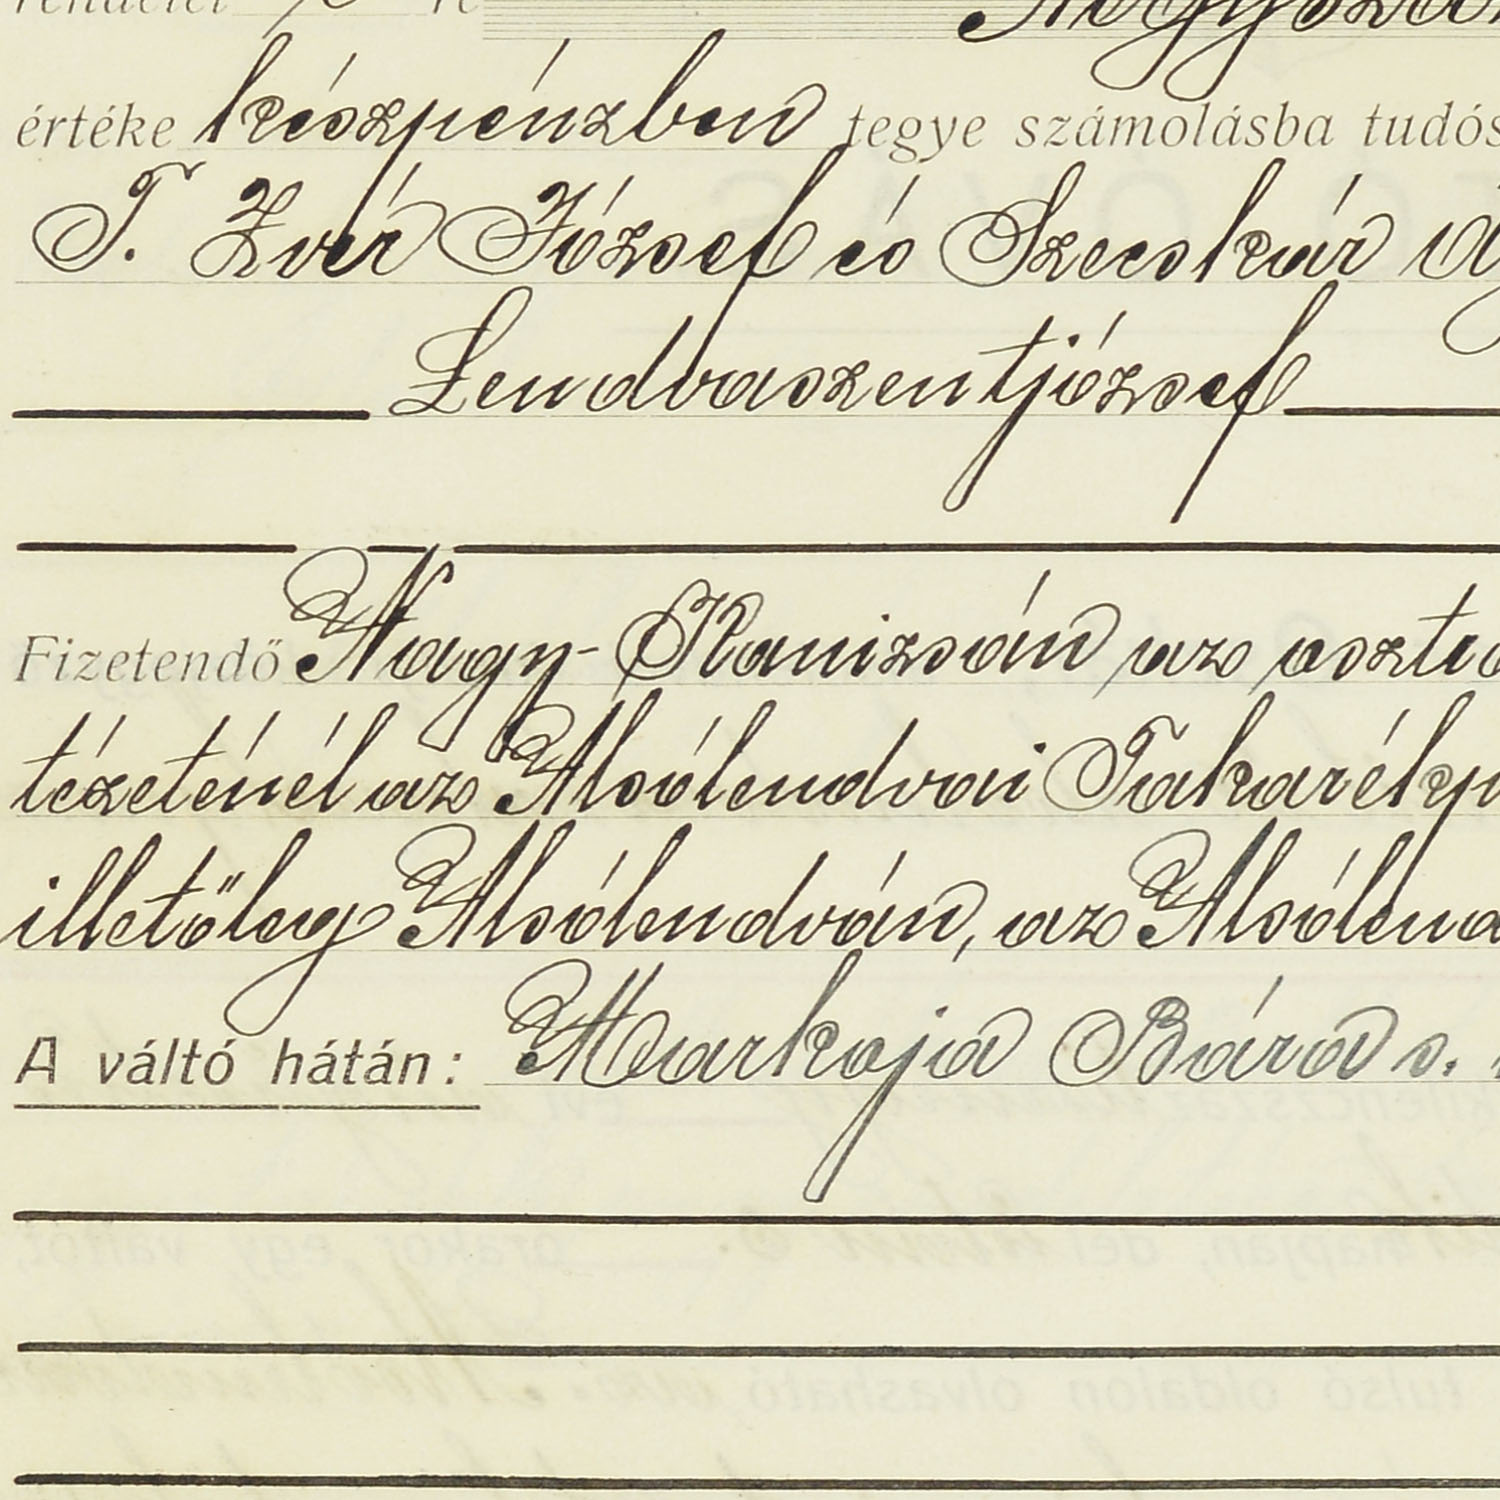 rendelet re
értéke készpénzben tegye számolásba tudós
T. Zver József és Szecskár
Lendvaszentjózsef
Fizetendő Nagy-Kanizsán az osztrá
tézeténél az Alsólendvai Takarékp
illetőleg Alsólendván, az Alsólend
A váltó hátán: Markoja Bára s.